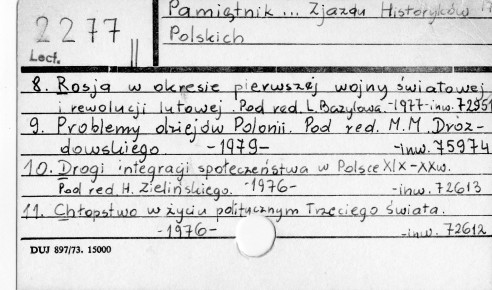 2277
Lect.
Pamiętnik ... Zjazdu Historyków
Polskich
8. Rosja w okresie pierwszej wojny światowej
i rewolucji lutowej. Pod red. L. Bazylowa. -1977- inw. 72951
9. Problemy dziejów Polonii. Pod red. M.M. Droz-
dowskiego -1979- -inw. 75974
10. Drogi integracji społeczeństwa w Polsce XIX-XXw.
Pod red. H. Zielińskiego. -1976- -inw. 72613
11. Chłopstwo w życiu politycznym Trzeciego Świata.
-1976- -inw. 72612
DUJ 897/73. 15000